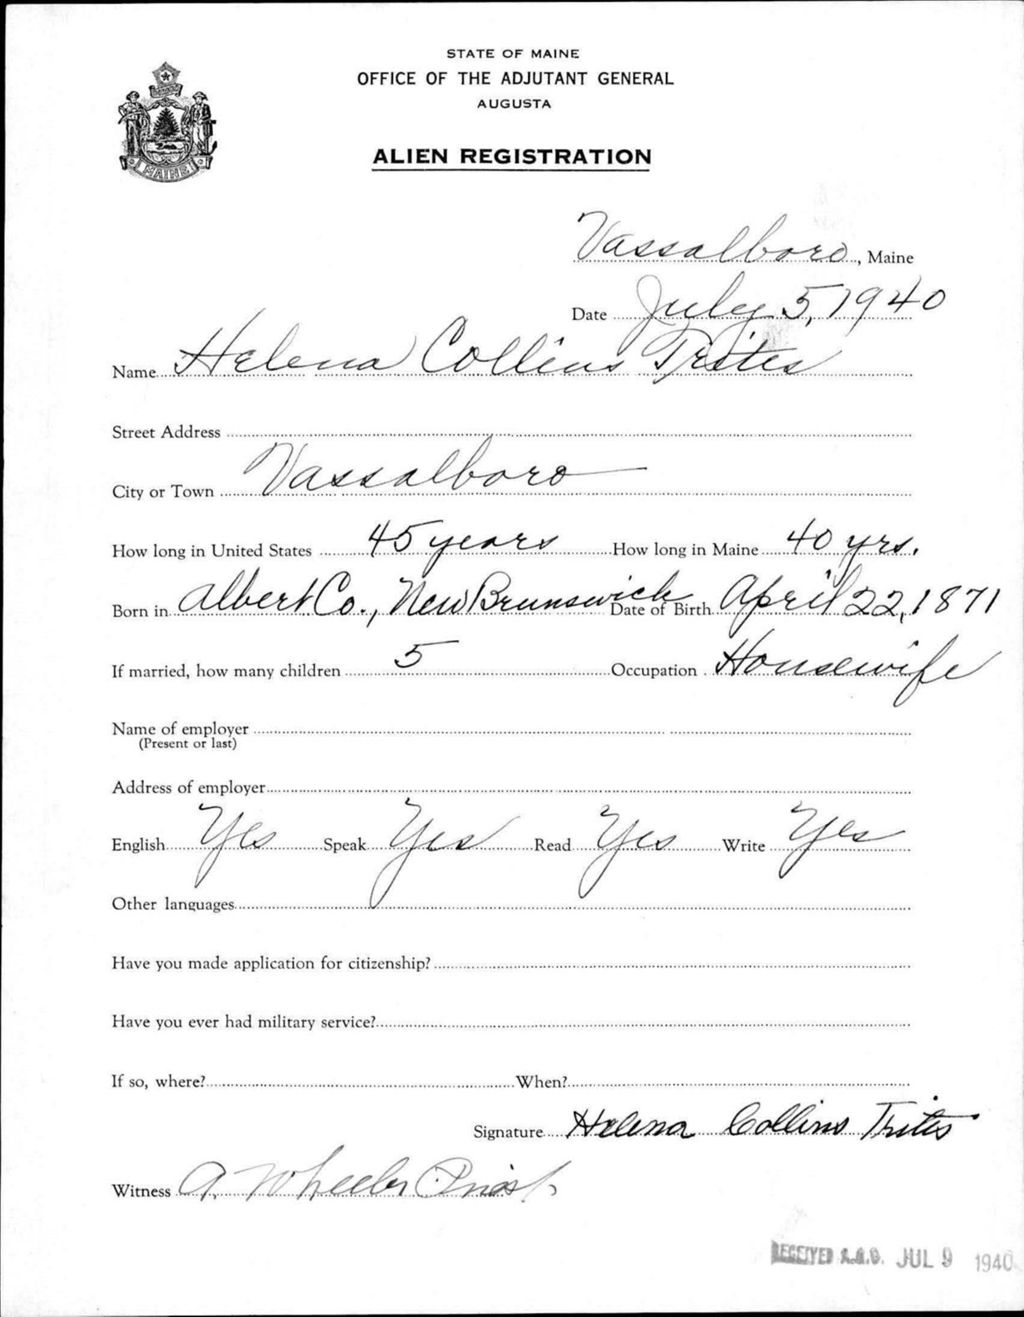 STATE OF MAINE
OFFICE OF THE ADJUTANT GENERAL
AUGUSTA
ALIEN REGISTRATION
MAINE
Vassalboro, Maine
Date July 5, 1940
Name Helena Collins Trites
Street Address
City or Town Vassalboro
How long in United States 45 years How long in Maine 40 yrs.
Born in Albert Co., New Brunswick Date of Birth April 22, 1871
If married, how many children 5 Occupation Housewife
Name of employer
(Present or last)
Address of employer
English Yes Speak Yes Read Yes Write Yes
Other languages
Have you made application for citizenship?
Have you ever had military service?
If so, where? When?
Signature Helena Collins Trites
Witness A. Wheeler Priest
RECEIVED A.G.O. JUL 9 1940